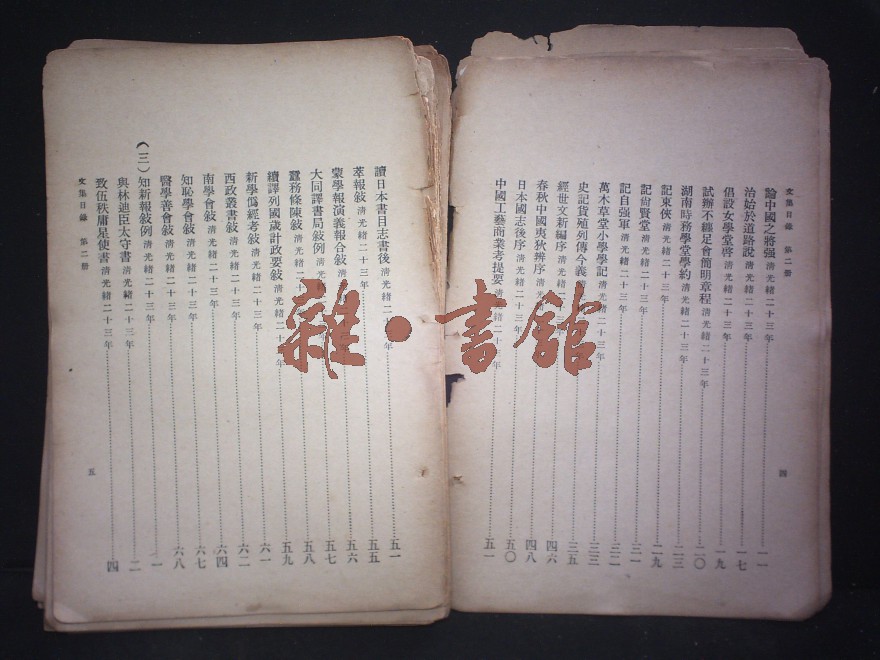 文集目錄 第二册
論中國之將强 清光緒二十三年 一一
治始於道路說 清光緒二十三年 一七
倡設女學堂啓 清光緒二十三年 一九
試辦不纏足會簡明章程 清光緒二十三年 二〇
湖南時務學堂學約 清光緒二十三年 二三
記東俠 清光緒二十三年 二九
記尙賢堂 清光緒二十三年 三一
記自强軍 清光緒二十三年 三二
萬木草堂小學學記 清光緒二十三年 三三
史記貨殖列傳今義 三五
經世文新編序 清光緒二十三年 四六
春秋中國夷狄辨序 清光緒二十三年 四八
日本國志後序 清光緒二十三年 五〇
中國工藝商業考提要 清光緒二十三年 五一
四
讀日本書目志書後 清光緒二 年 五一
萃報敍 清光緒二十三年 五五
蒙學報演義報合敍 清光緒 年 五六
大同譯書局敍例 清光緒 年 五七
蠶務條陳敍 清光緒二 年 五八
續譯列國歲計政要敍 清光緒二十三年 五九
新學僞經考敍 清光緒二十三年 六一
西政叢書敍 清光緒二十三年 六二
南學會敍 清光緒二十三年 六四
知恥學會敍 清光緒二十三年 六七
醫學善會敍 清光緒二十三年 六八
(三) 知新報敍例 清光緒二十三年 一
與林迪臣太守書 清光緒二十三年 二
致伍秩庸星使書 清光緒二十三年 四
文集目錄 第二册
五
雜·書館